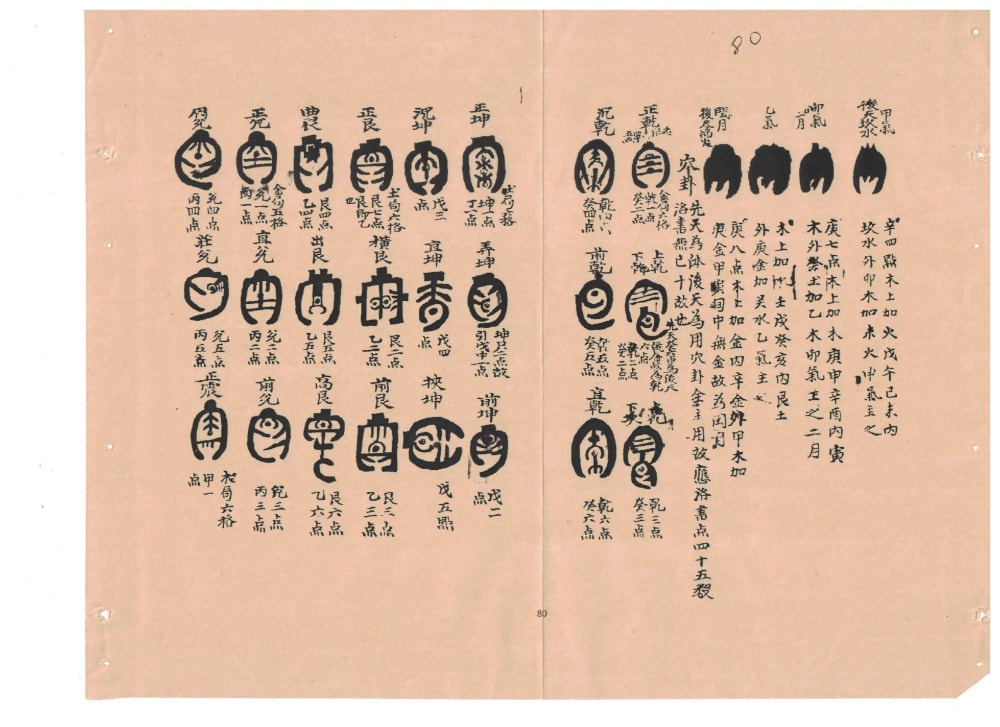 80
甲氣
後天坎水
卯氣
二月
乙氣
辛四點木上加火戊午己未內
坎水外卯木加未火中氣主之
庚七点木上加木庚申辛酉內寅
木外癸主加乙木卯氣主之二月
木上加水壬戌癸亥內艮土
外庚金加
水乙氣主
庚八点木上加金內辛金外甲木加
庚金甲
司中無金故為閏月
穴卦
先天為體後天為用穴卦全主用故應洛書点四十五殺
洛書無已十故也
正乾
金局六格
乾一点
癸二点
沉乾
乾四点
癸四点
上乾
下乾
乾二点
癸二点
前乾
乾五点
癸五点
乾三点
癸三点
直乾
乾六点
癸六点
正坤
土局六格
坤一点
丁一点
沉坤
戊三
点
正艮
土局六格
艮七点
艮即乙
也
曲艮
艮四点
乙四点
正兌
金局五格
兌一点
丙一点
兌四点
丙四点
弄坤
坤只二点故
引戊中一点
直坤
戊四
点
橫艮
艮二点
乙二点
出艮
艮五点
乙五点
直兌
兌二点
丙二点
莊兌
兌五点
丙五点
前坤
戊二
点
挾坤
戊五點
前艮
艮三点
乙三点
高艮
艮六点
乙六点
前兌
兌三点
丙三点
正震
木局六格
甲一
点
80